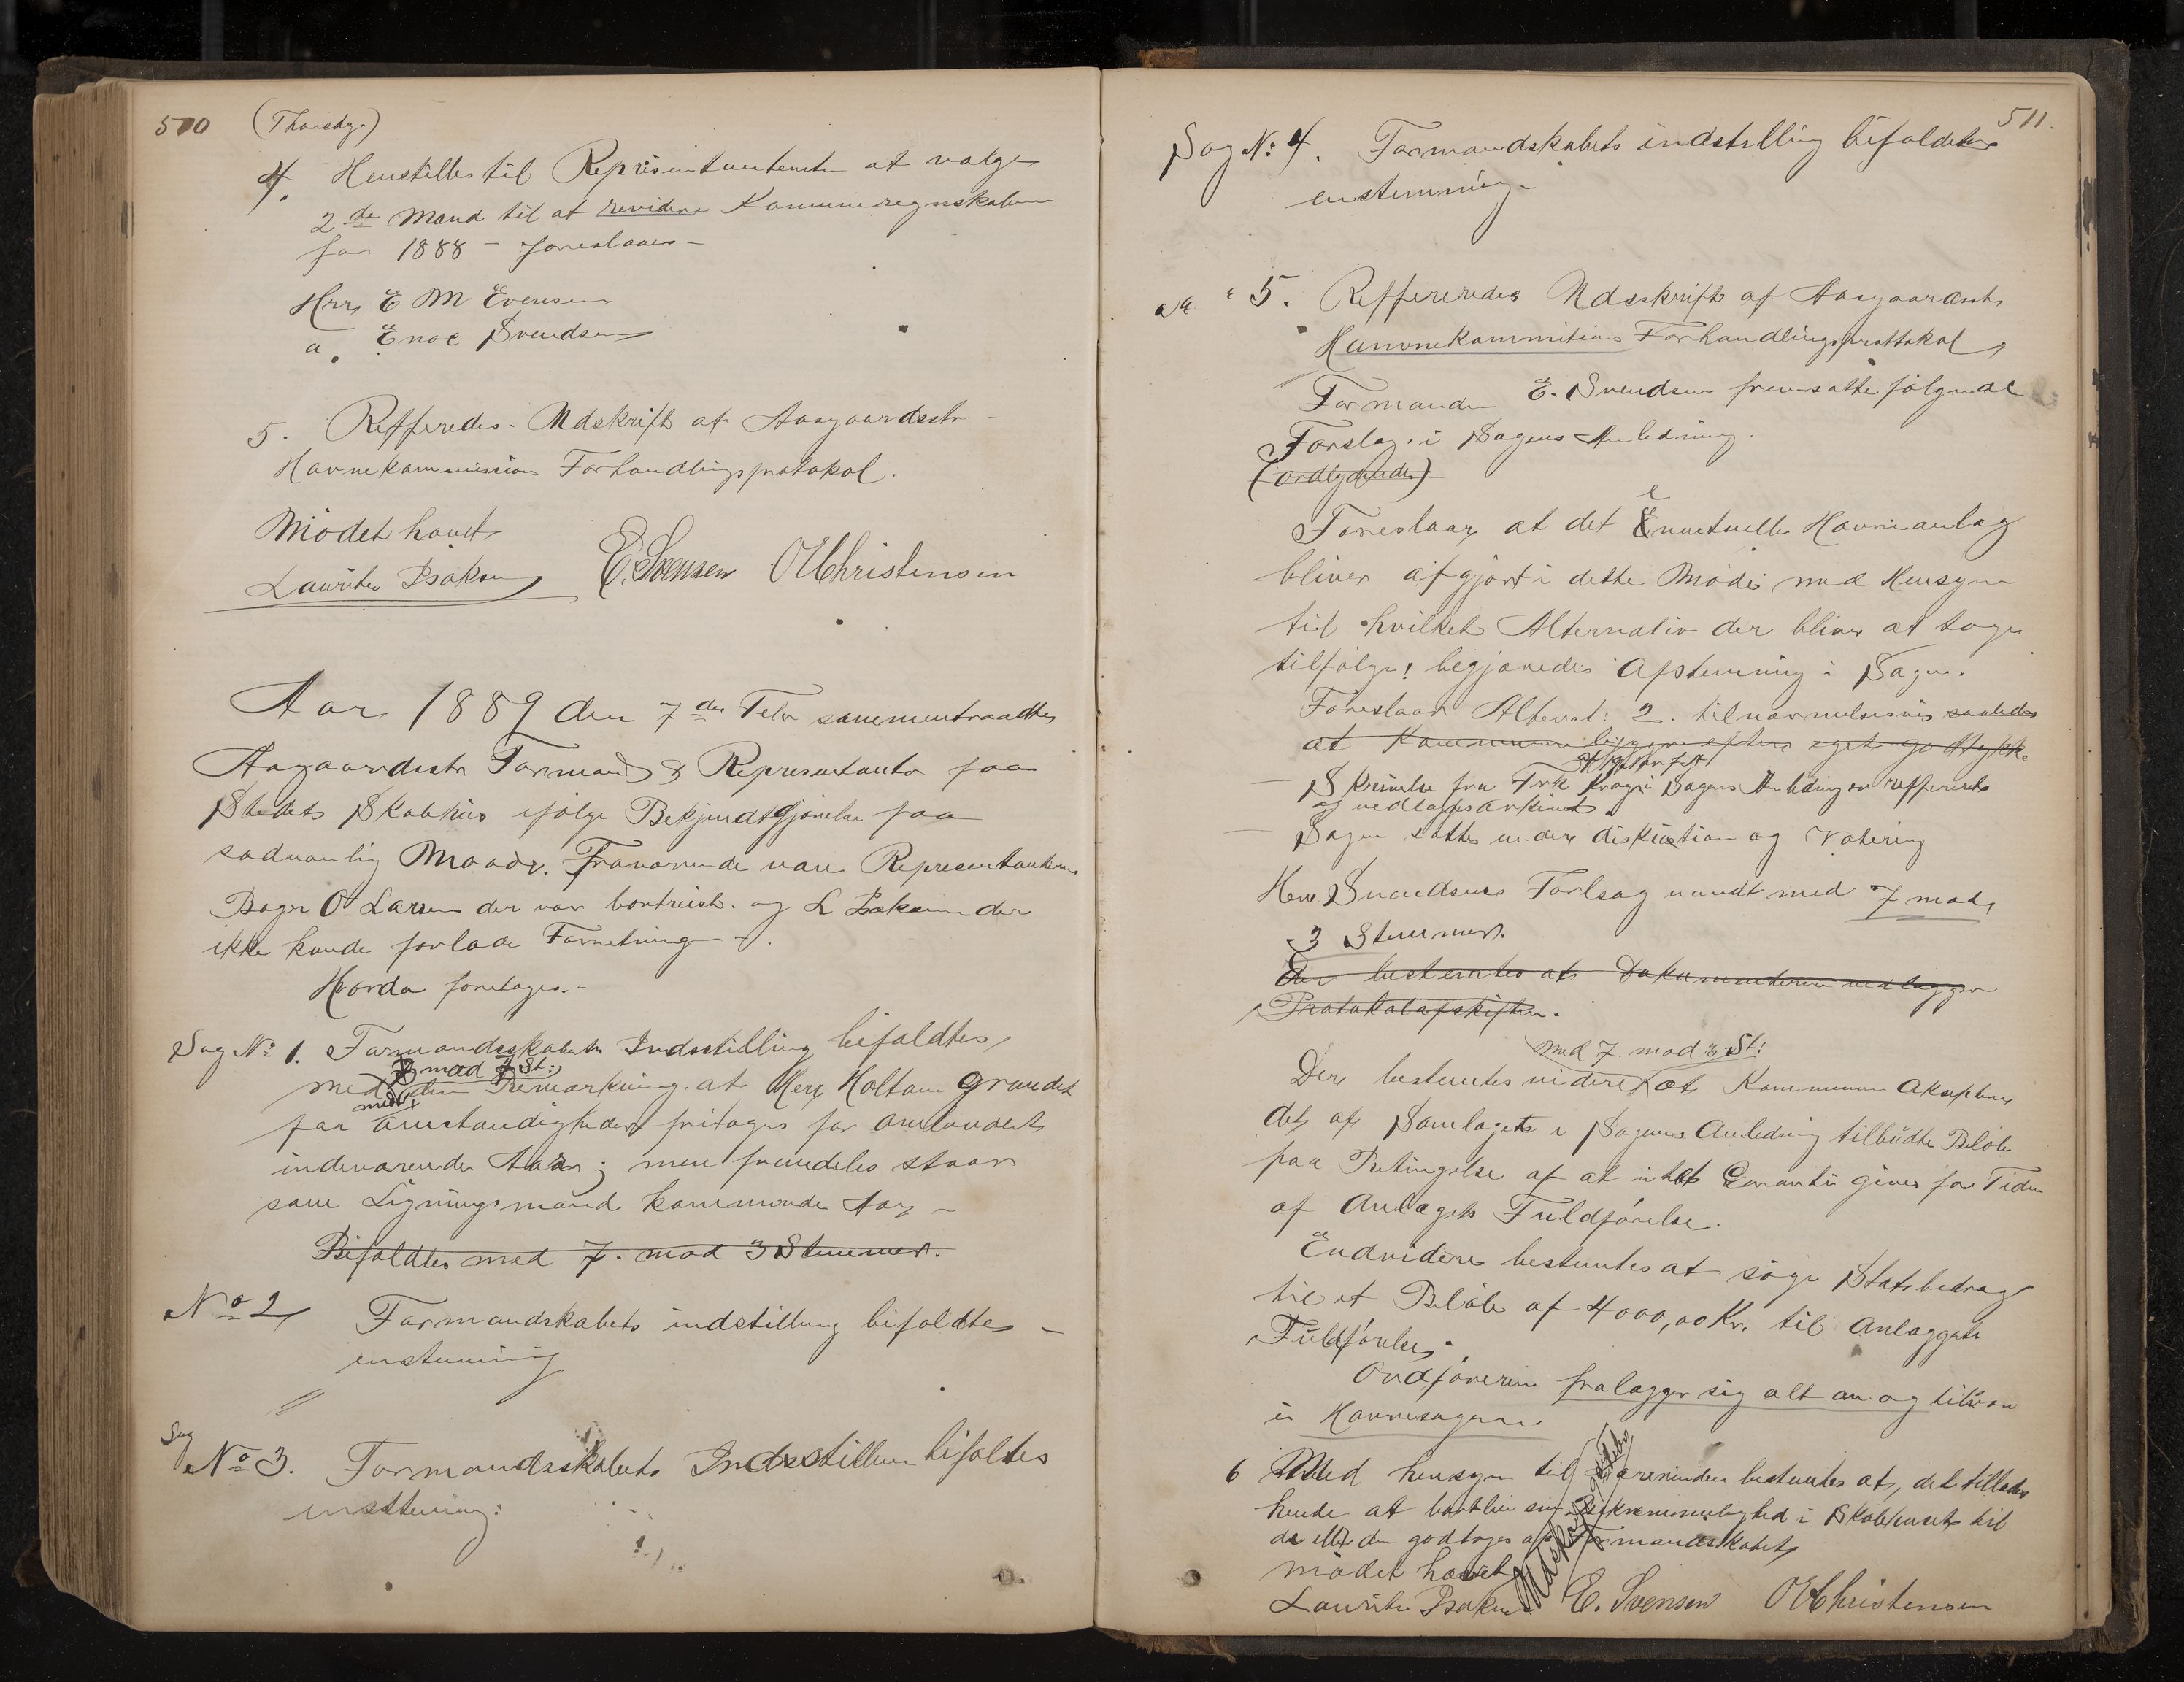 510 (Thorsdag)
4. Henstilles til Repræsentanterne at vælge
2de Mand til at revidere Kommuneregnskaberne
for 1888 – foreslaaes –
Hrr E M Evensen
" Enoc Svendsen
5. Refferedes. Udskrift af Aasgaardsstr –
Havnekommissions Forhandlingsprotokol.
Mödet hævet
Lauritz Isaksen E. Svensen O H Christensen
Aar 1889 den 7de Febr sammentraadte
Aagaardsstr Formand & Representanter paa
Stedets Skolehus ifölge Bekjendtgjörelse paa
sædvanlig Maade. Fraværende vare Representanterne
Bager O Larsen der var bortreist. og L Isaksen der
ikke kunde forlade Forretningen.
Hvorda foretages. –
Sag No 1. Formandsskabets Indstilling bifaldtes,
3 mod 7 St:
med den Bemærkning. at Herr Holtan Grundet
paa omstændigheder fritages for ombudet
indeværende Aar; men fremdeles staar
som Ligningsmand kommende Aar –
Bifaldtes med 7. mod 3 Stemmer.
No 2 Formandskabets indstilling bifaldtes –
enstemmig
Sag
No 3. Formandsskabets Indstillin bifaltes
enstemig:
511.
Sag No: 4. Formandskabets indstilling bifaldtes
enstemmig
" " 5. Reffereredes Udsskrift af Aasgaardsstr
Havnekommitions Forhandlingsprottokol,
Formanden E. Svendsen fremsatte fölgende
Forslag i Sagens Anledning.
(ordlydende)
Foreslaar at det Eventuelle Havneanlag
bliver afgjort i dette Möde med Hensyn
til hvilket Alternativ der bliver at tage
tilfölge! begjæredes Afstemning i Sagen.
Foreslaar Alternat: 2. tilnærmelsesvis saaledes
at Kommunen eget
Skrivelse fra Frk Krog i Sagens Anledning er reffereret
og vedlagges Arkivet
Sagen sattes under diskustion og Votering
Herr Svendsens Forlsag vandt med 7 mod,
3 Stemmer.
Der bestemtes at Dokumenterne vedlægges
Protokolafskiften.
med 7. mod 3. St:
Der bestemtes videre at Kommunen Aksepterer
det af Samlaget i Sagens Anledning tilbudte Belöb
paa Betingelse af at intet Garanti gives for Tiden
af Anlægets Fuldförelse.
Endvidere bestemtes at söge Statsbedrag
til et Belöb af 4000,00 Kr. til Anlæggets
Fuldförelse.
Ordföreren fralægger sig alt an- og tilsvar
i Havnesagen.
6 Med hensyn til bestemtes at, det tillades
hende at i Skolehuset til
de eller den godtages af Formandsskabet,
mödet hævet
Lauritz Isaksen E. Svensen O H Christensen